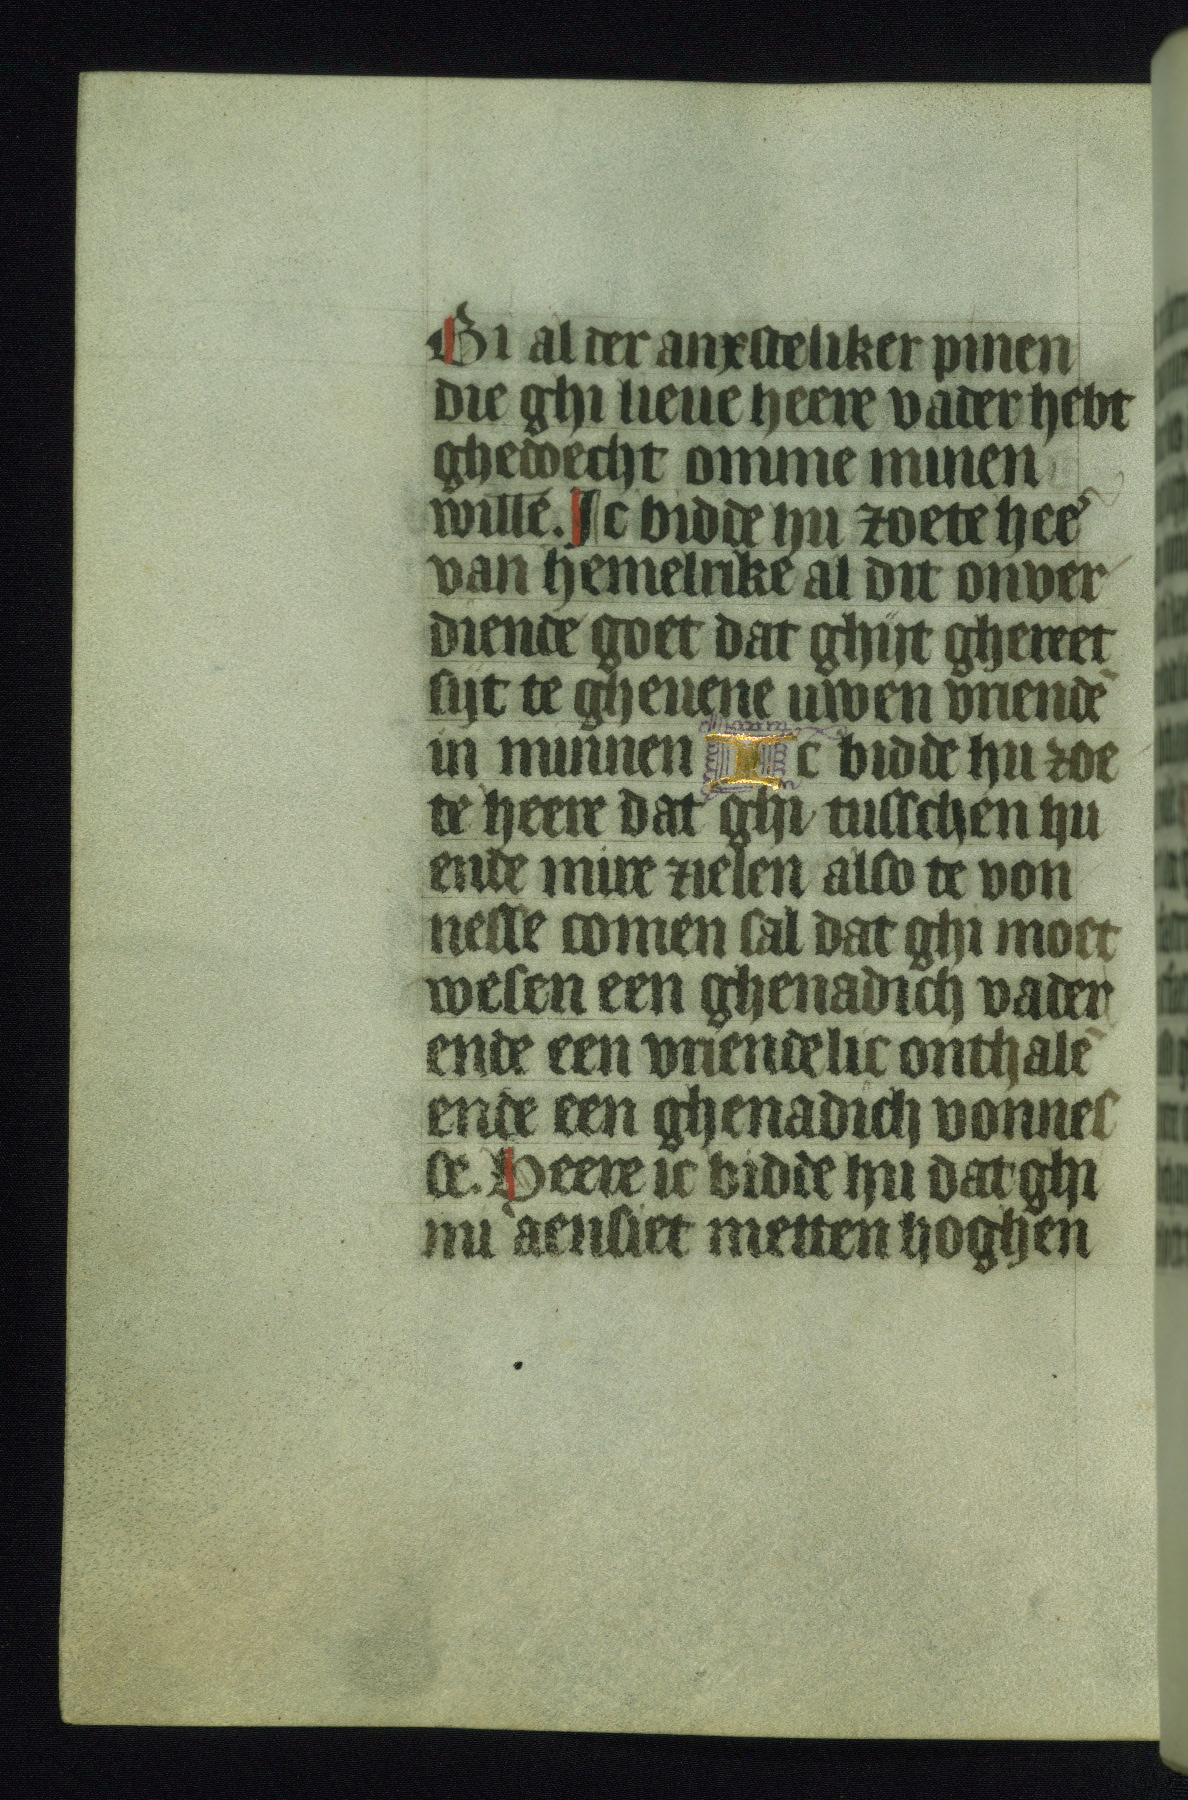 Bi al der anxsteliker pinen
die ghi lieue heere vader hebt
ghedoecht omme minen
wille. Ic bidde hu zoete hee˜
van hemelrike al dit onver
diende goet dat ghijt ghereet
sijt te gheuene uwen vriendē
in minnen Ic bidde hu zoe
te heere dat ghi tusschen hu
ende mire zielen also te von
nesse comen sal dat ghi moet
wesen een ghenadich vader
ende een vriendelic onthalē
ende een ghenadich vonnes
se. Heere ic bidde hu dat ghi
nu aensiet metten hoghen